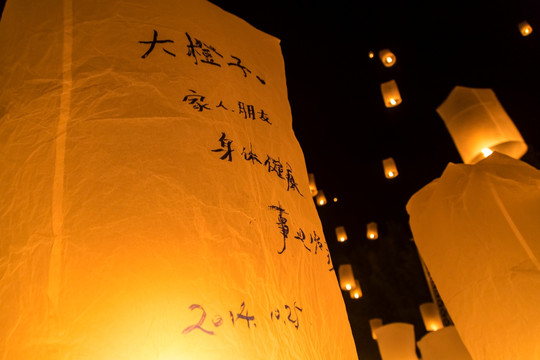 大橙子、
家人朋友
身体健康
事业
2014.10.25